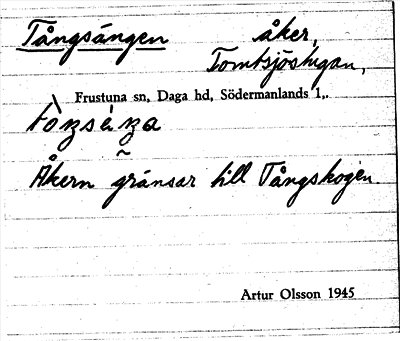 Tångsängen åker,
Tomtsjöstugan,
Frustuna sn, Daga hd, Södermanlands l.
Åkern gränsar till Tångskogen
Artur Olsson 1945